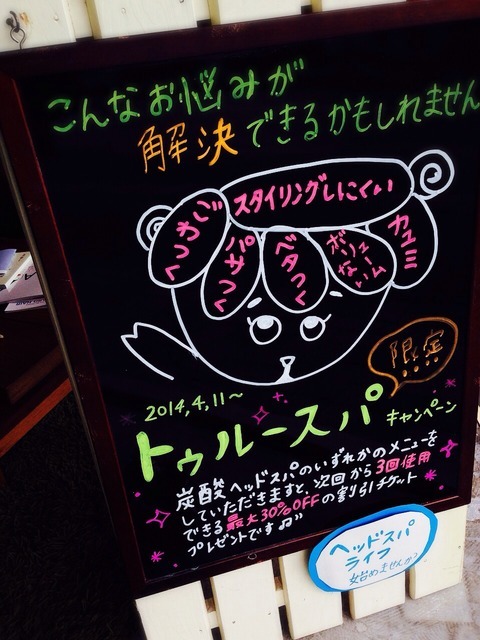 こんなお悩みが
解決できるかもしれません
スタイリングしにくい
ごわつく
パサつく
ベタつく
ボリュームない
カユミ
限定
2014,4,11～
トゥルースパ キャンペーン
炭酸ヘッドスパのいずれかのメニューを
していただきますと、次回から3回使用
できる最大30%OFFの割引チケット
プレゼントですよ"
ヘッドスパ
ライフ
始めませんか?